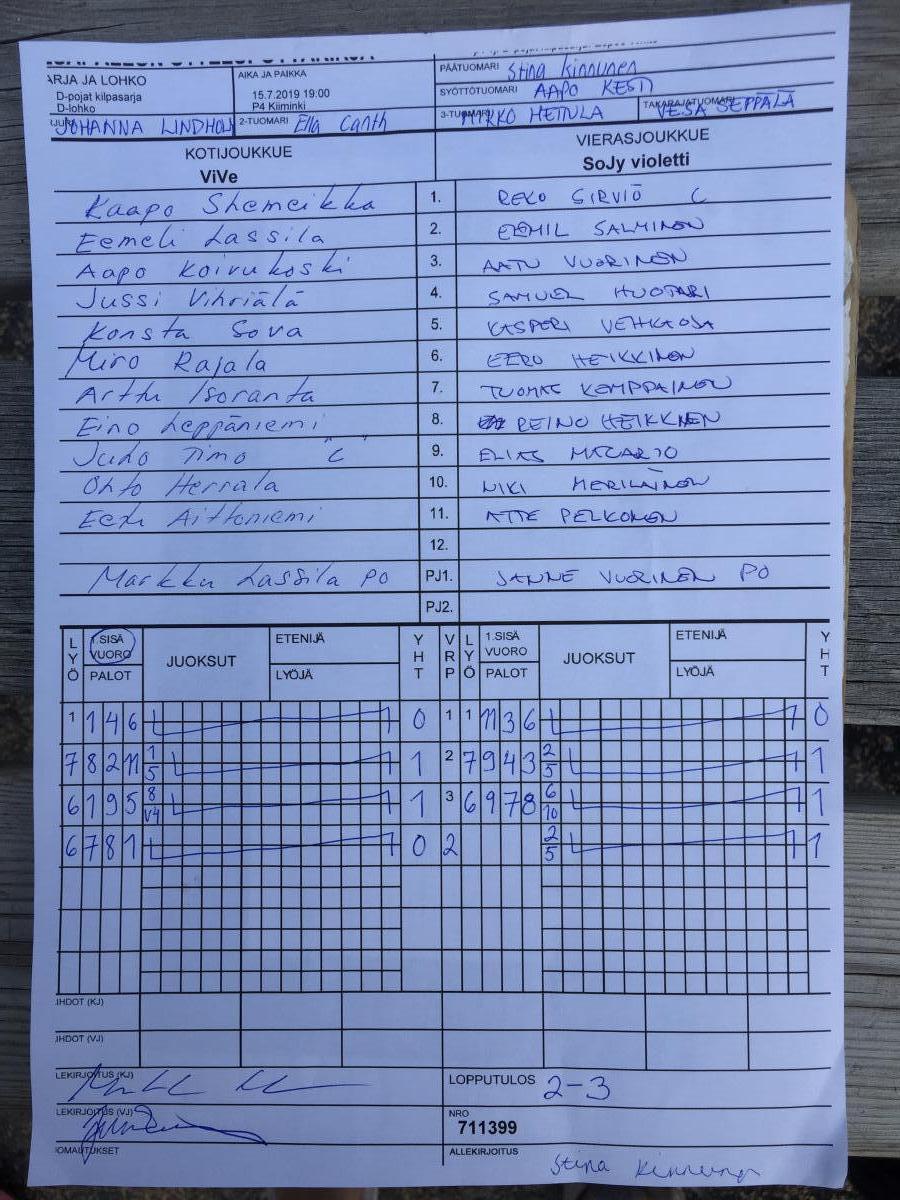 ARJA JA LOHKO
D-pojat kilpasarja
D-lohko
AIKA JA PAIKKA
15.7.2019 19:00
P4 Kiiminki
PÄÄTUOMARI Stina Kinnunen
SYÖTTÖTUOMARI AAPO KESTI
JOHANNA LINDHOLM
2-TUOMARI Ella Canth
3-TUOMARI MIRKO HETULA
TAKARAJATUOMARI VESA SEPPÄLÄ
KOTIJOUKKUE
ViVe
VIERASJOUKKUE
SoJy violetti
Kaapo Shemeikka 1. REKO SIRVIÖ C
Eemeli Lassila 2. EEMIL SALMINEN
Aapo Koivukoski 3. AATU VUORINEN
Jussi Vihriälä 4. SAMUEL HUOTARI
Konsta Sova 5. KASPERI VEHKAOJA
Miro Rajala 6. EERO HEIKKINEN
Arttu Isoranta 7. TUOMAS KEMPPAINEN
Eino Leppäniemi 8. REINO HEIKKINEN
Juho Timo "C" 9. ELIAS MACARIO
Ohto Herrala 10. NIKI MERILÄINEN
Eetu Aittoniemi 11. ATTE PELKONEN
12.
Markku Lassila PO PJ1. JANNE VUORINEN PO
PJ2.
LYÖ 1.SISÄ VUORO PALOT JUOKSUT ETENIJÄ LYÖJÄ YHT VRP LYÖ 1.SISÄ VUORO PALOT JUOKSUT ETENIJÄ LYÖJÄ YHT
1 1 4 6 0 1 1 11 3 6 0
7 8 2 11 1/5 1 2 7 9 4 3 2/5 1
6 1 9 5 8/V4 1 3 6 9 7 8 6/10 1
6 7 8 1 0 2 2/5 1
IHDOT (KJ)
IHDOT (VJ)
LEKIRJOITUS (KJ)
LOPPUTULOS 2-3
LEKIRJOITUS (VJ)
NRO
711399
OMAUTUKSET
ALLEKIRJOITUS Stina Kinnunen